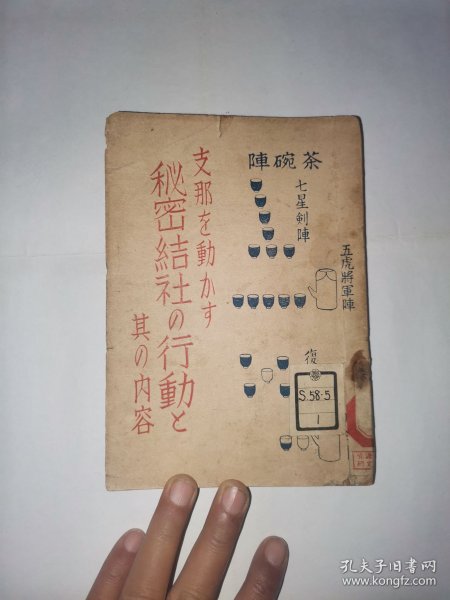 茶碗陣
七星剣陣
五虎將軍陣
復
支那を動かす
秘密結社の行動と
其の内容
S.58-5
1
孔夫子旧书网
www.kongfz.com